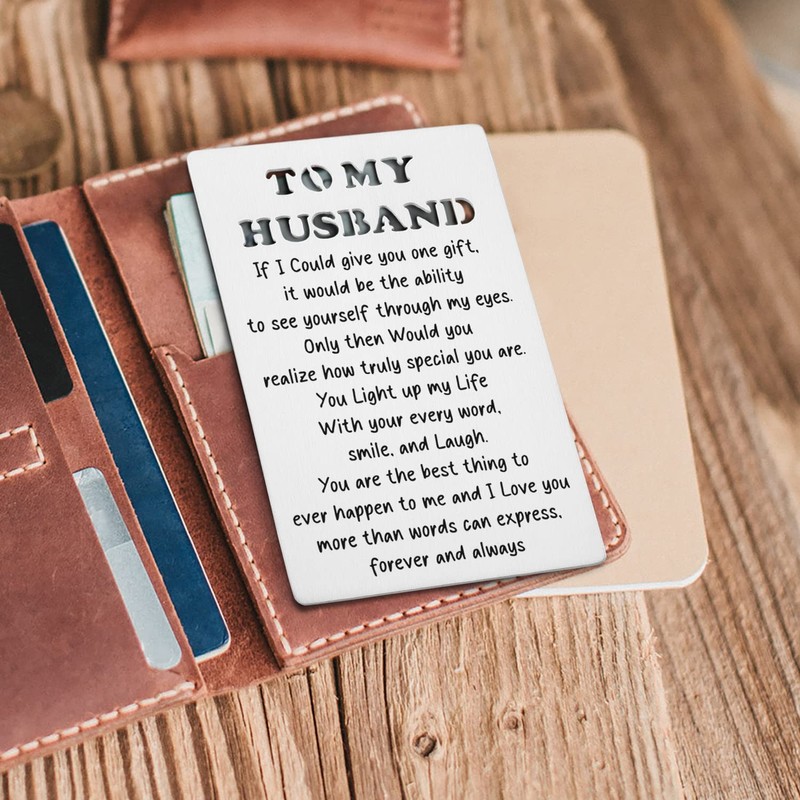 TO MY
HUSBAND
If I Could give you one gift,
it would be the ability
to see yourself through my eyes.
Only then Would you
realize how truly special you are.
You Light up my Life
With your every word,
smile, and Laugh.
You are the best thing to
ever happen to me and I Love you
more than words can express,
forever and always